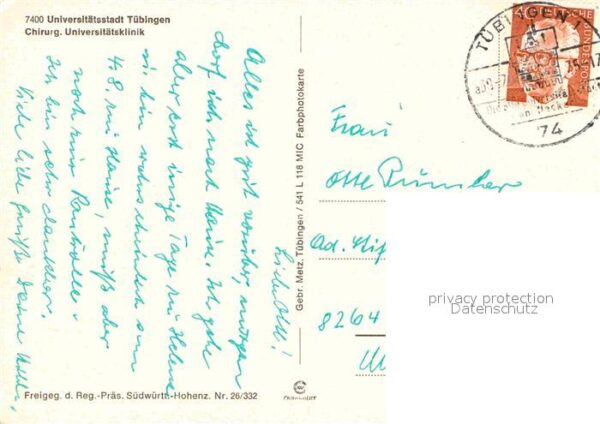 7400 Universitätsstadt Tübingen
Chirurg. Universitätsklinik
Alles ist gut vorüber, morgen
darf ich nach Hause. Ich gehe
aber erst einige Tage zu Helene
wir bin wahrscheinlich am
4.8. zu Hause, muß aber
noch zur Kontrolle.
Ich bin sehr dankbar.
Viele liebe Grüße Deine
Gebr. Metz, Tübingen / 541 L 118 MIC Farbphotokarte
Freigeg. d. Reg.-Präs. Südwürth-Hohenz. Nr. 26/332
TÜBINGEN 1
74
40
DEUTSCHE BUNDESPOST
Frau
Otte
Ad.
8264
privacy protection
Datenschutz